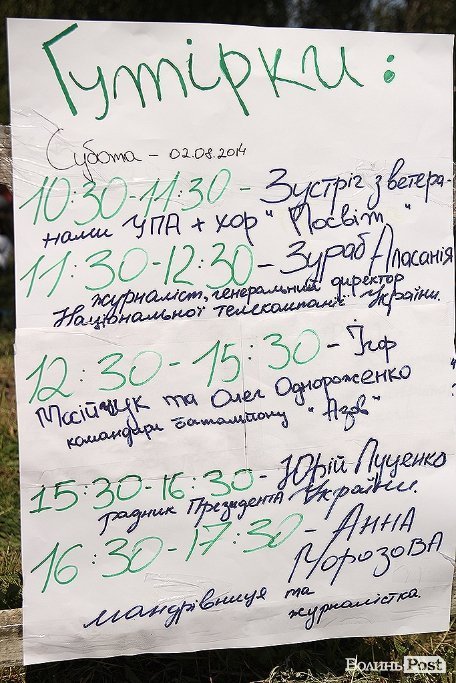 Гутірки:
Субота – 02.08.2014
10:30-11:30 – Зустріч з ветера-
нами УПА + хор "Посвіт"
11:30-12:30 – Зураб Аласанія
журналіст, генеральний директор
Національної телекомпанії України.
12:30 - 15:30 – Ігор
Мосійчук та Олег Однороженко
командири батальйону "Азов"
15:30-16:30 – Юрій Луценко
радник Президента України.
16:30-17:30 – Анна
Морозова
мандрівниця та
журналістка.
ВолиньPost